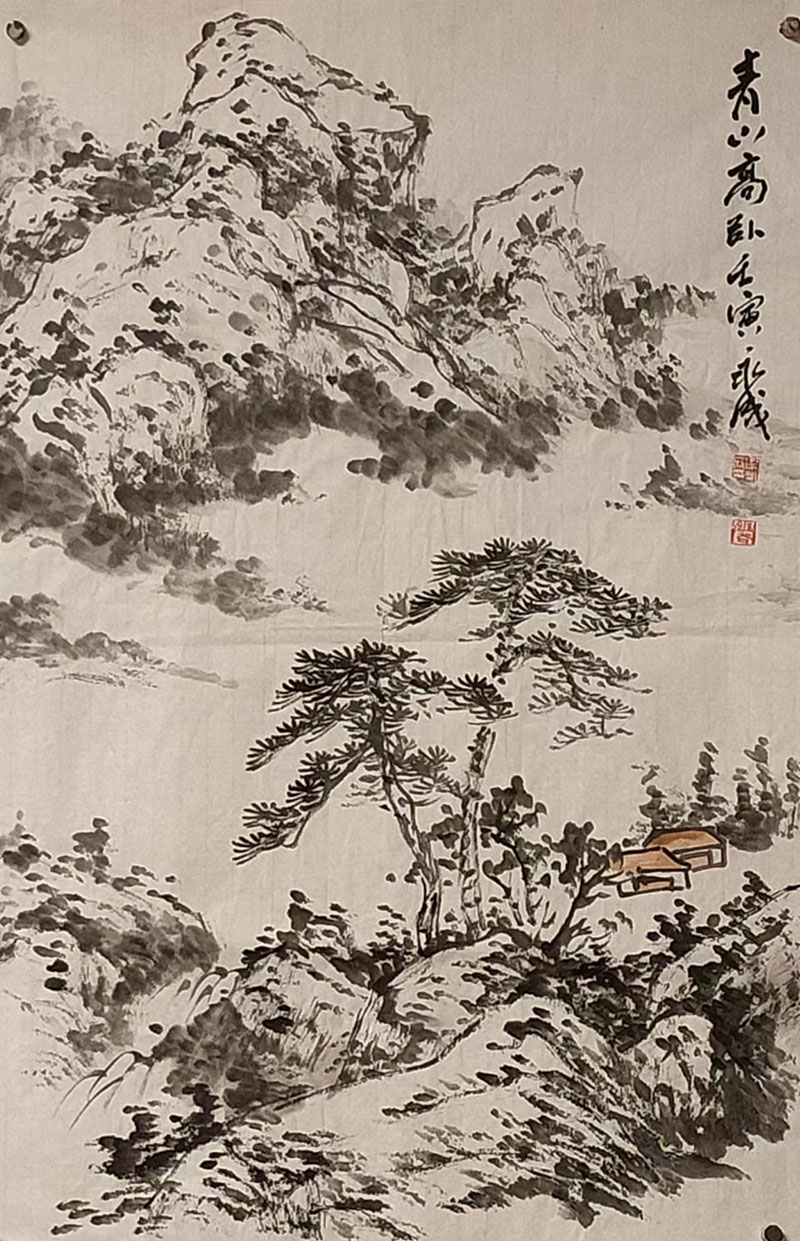 青山高卧壬寅永成